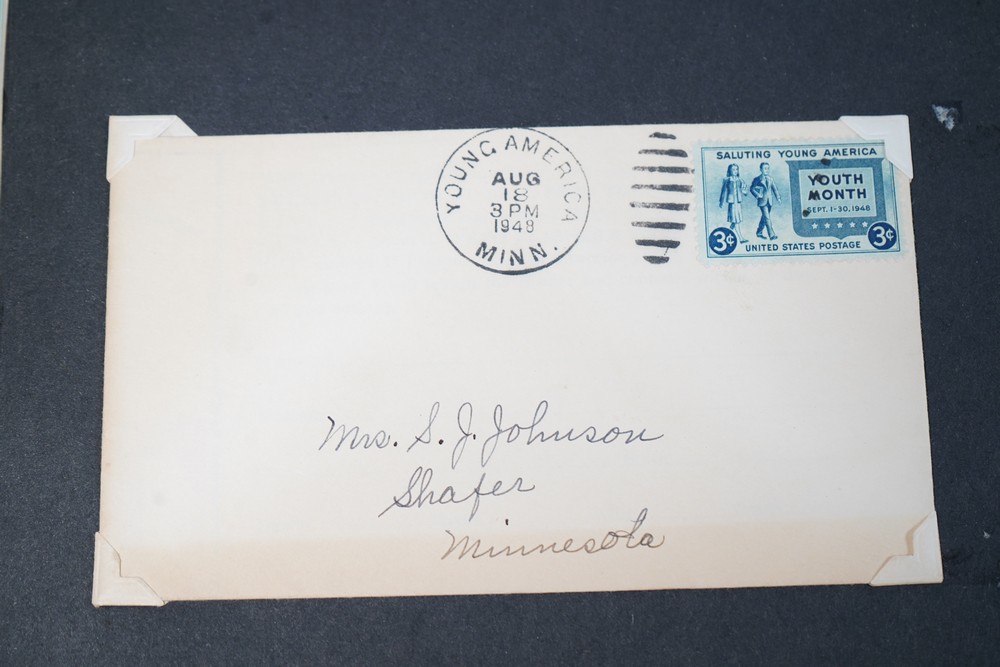 YOUNG AMERICA
AUG
18
3 PM
1948
MINN.
SALUTING YOUNG AMERICA
YOUTH
MONTH
SEPT. 1-30, 1948
3¢
UNITED STATES POSTAGE
3¢
Mrs. S. J. Johnson
Shafer
Minnesota